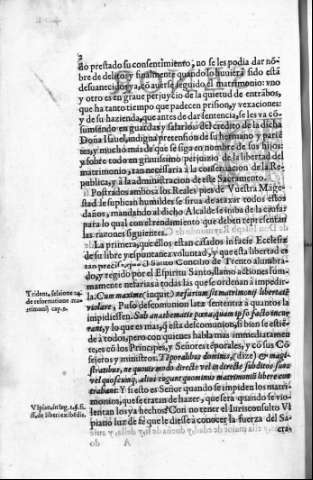 2
ño prestado su consentimiento, no se les podia dar nõ-
bre de delito: y finalmente quando lo huuiera sido està
desuanecido ya, cõ auerse seguido el matrimonio: vno
y otro es en graue perjuycio de la quietud de entrãbos,
que ha tanto tiempo que padecen prision, y vexaciones:
y de su hazienda, que antes de dar sentencia, se les va cõ-
sumiendo en guardas y salarios: del credito de la dicha
Doña Isauel, indigna pretension de su hermano y parie
tes, y mucho mas de que se siga en nombre de los hijos:
y sobre todo en grauissimo perjuizio de la libertad del
matrimonio, tan necessaria à la conseruacion de la Re-
publica, y à la administracion de este Sacramento.
Postrados ambos à los Reales pies de Vuestra Mage-
stad le suplican humildes se sirua de atajar todos estos
daños, mandando al dicho Alcalde se iniba de la causa:
para lo qual con el rendimiento que deben representan
las razones siguientes.
La primera, que ellos estan casados in facie Ecclesiæ
de su libre y espontanea voluntad, y que esta libertad es
tan precisa, que el Santo Concilio de Trento alumbra-
do, y regido por el Espiritu Santo, llamo acciones suma-
mente nefarias à todas las que se ordenan à impedir-
la. Cum maxime (inquit) nefarium sit matrimonij libertatē
violare, Puso descomunion latæ sententiæ à quantos la
impidiessen. Sub anathematis pœna, quam ipso facto incur
rant, y lo que es mas, q̃ esta descomunion, si bien se estiē-
de à todos, pero con quienes habla mas immediatamen
te, es cõ los Principes, y Señores tẽporales, y con sus Cõ-
sejeros y ministros. Tẽporalibus dominis, (dize) & magi-
stratibus, ne quouis modo directè vel indirectè subditos suos
vel quoscũnq; alios cogant quominus matrimonia liberè con
trahant. Y si esto es Señor quando se impiden los matri-
monios, que se tratan de hazer, que serà quando se vio-
lentan los ya hechos? Con no tener el Iurisconsulto Vl
piano luz de fè que le diesse à conocer la fuerça del Sa-
cra-
Trident. sessione 24.
de reformatione ma-
trimonij cap. 9.
Vlpian. in leg. 1. §. fi.
ff. de liberi exibẽdis.